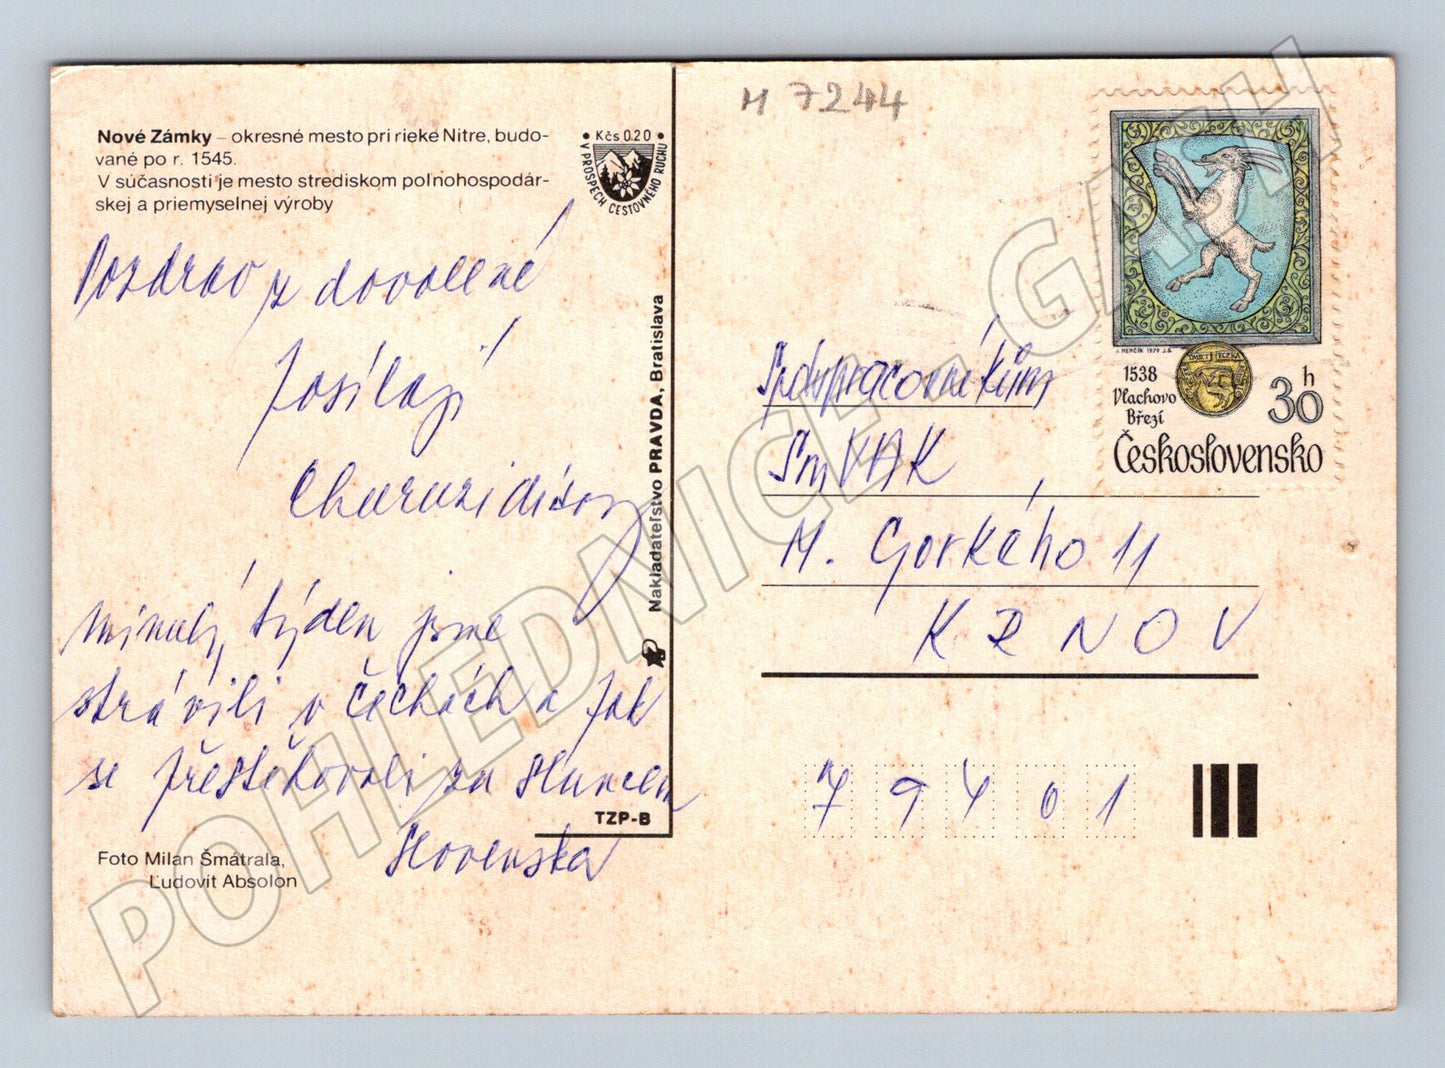 M 7244
Nové Zámky – okresné mesto pri rieke Nitre, budo-
vané po r. 1545.
V súčasnosti je mesto strediskom poľnohospodár-
skej a priemyselnej výroby
• Kčs 0.20 •
V PROSPECH CESTOVNÉHO RUCHU
Pozdrav z dovolené
posílají
minulý týden jsme
strávili v Čechách a pak
se přestěhovali za sluncem
Slovenska
Foto Milan Šmátrala,
Ľudovít Absolon
TZP-B
Nakladateľstvo PRAVDA, Bratislava
J. HERČÍK 1979 J.S.
1538
Vlachovo
Březí
30 h
Československo
Spolupracovníkům
SmVAK
M. Gorkého 11
KRNOV
79401
POHLEDNICE - GASH